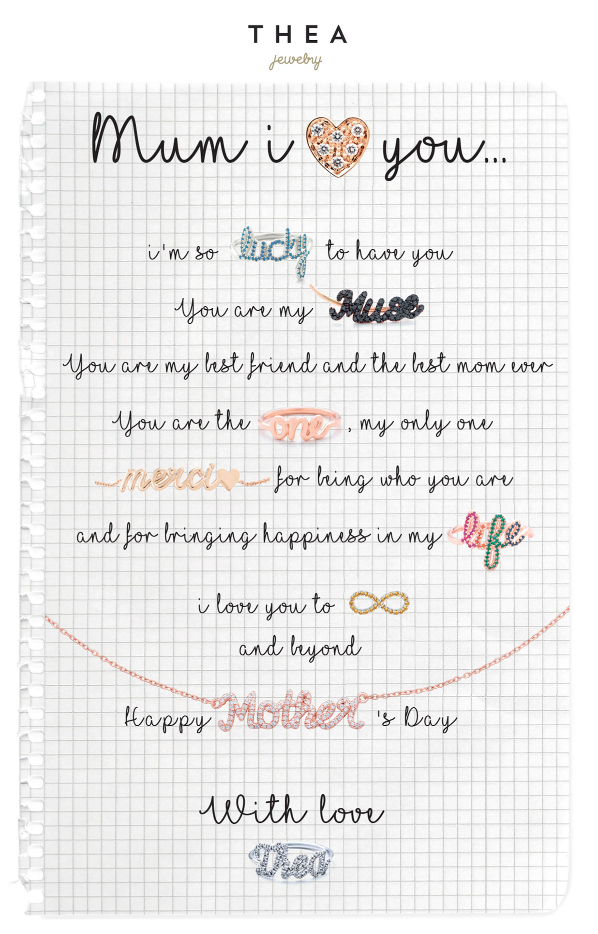 THEA
jewelry
Mum i you...
i'm so lucky to have you
You are my Muse
You are my best friend and the best mom ever
You are the one, my only one
merci for being who you are
and for bringing happiness in my life
i love you to
and beyond
Happy Mother's Day
With love
Thea